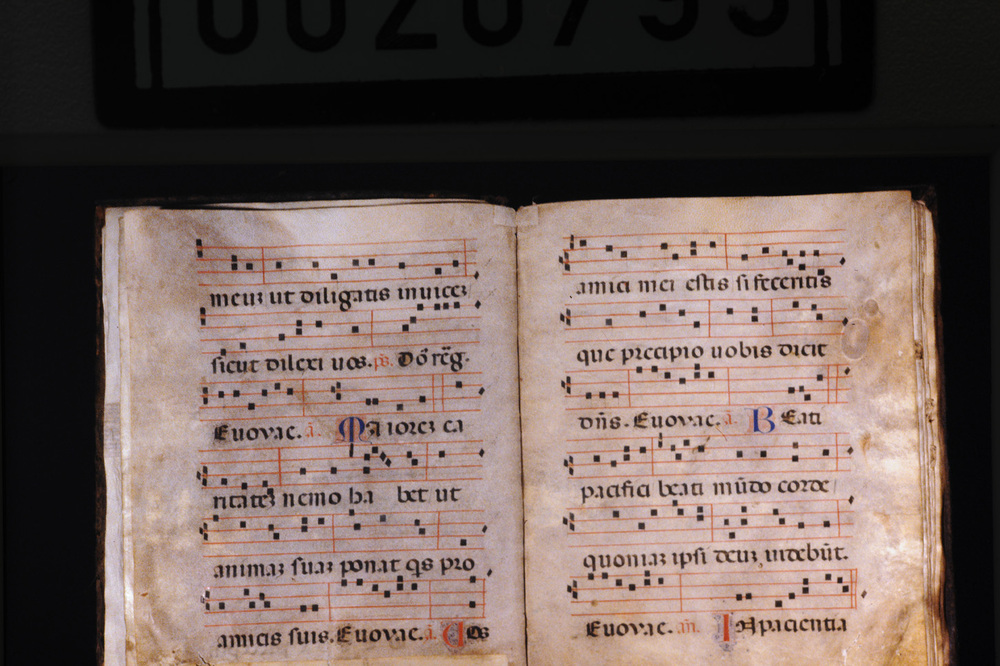 0020795
meuz ut diligatis inuicez
sicut dilexi uos. ps. Dñs rēg.
Euovae. ā. MAiorez ca
ritatez nemo ha bet ut
animaz suaz ponat qs pro
amicis suis. Euovae. ā. Uos
amici mei estis si feceritis
que precipio uobis dicit
dñs. Euovae. ā. BEati
pacifici beati mūdo corde
quoniaz ipsi deuz uidebūt.
Euovae. añ. INpaciencia